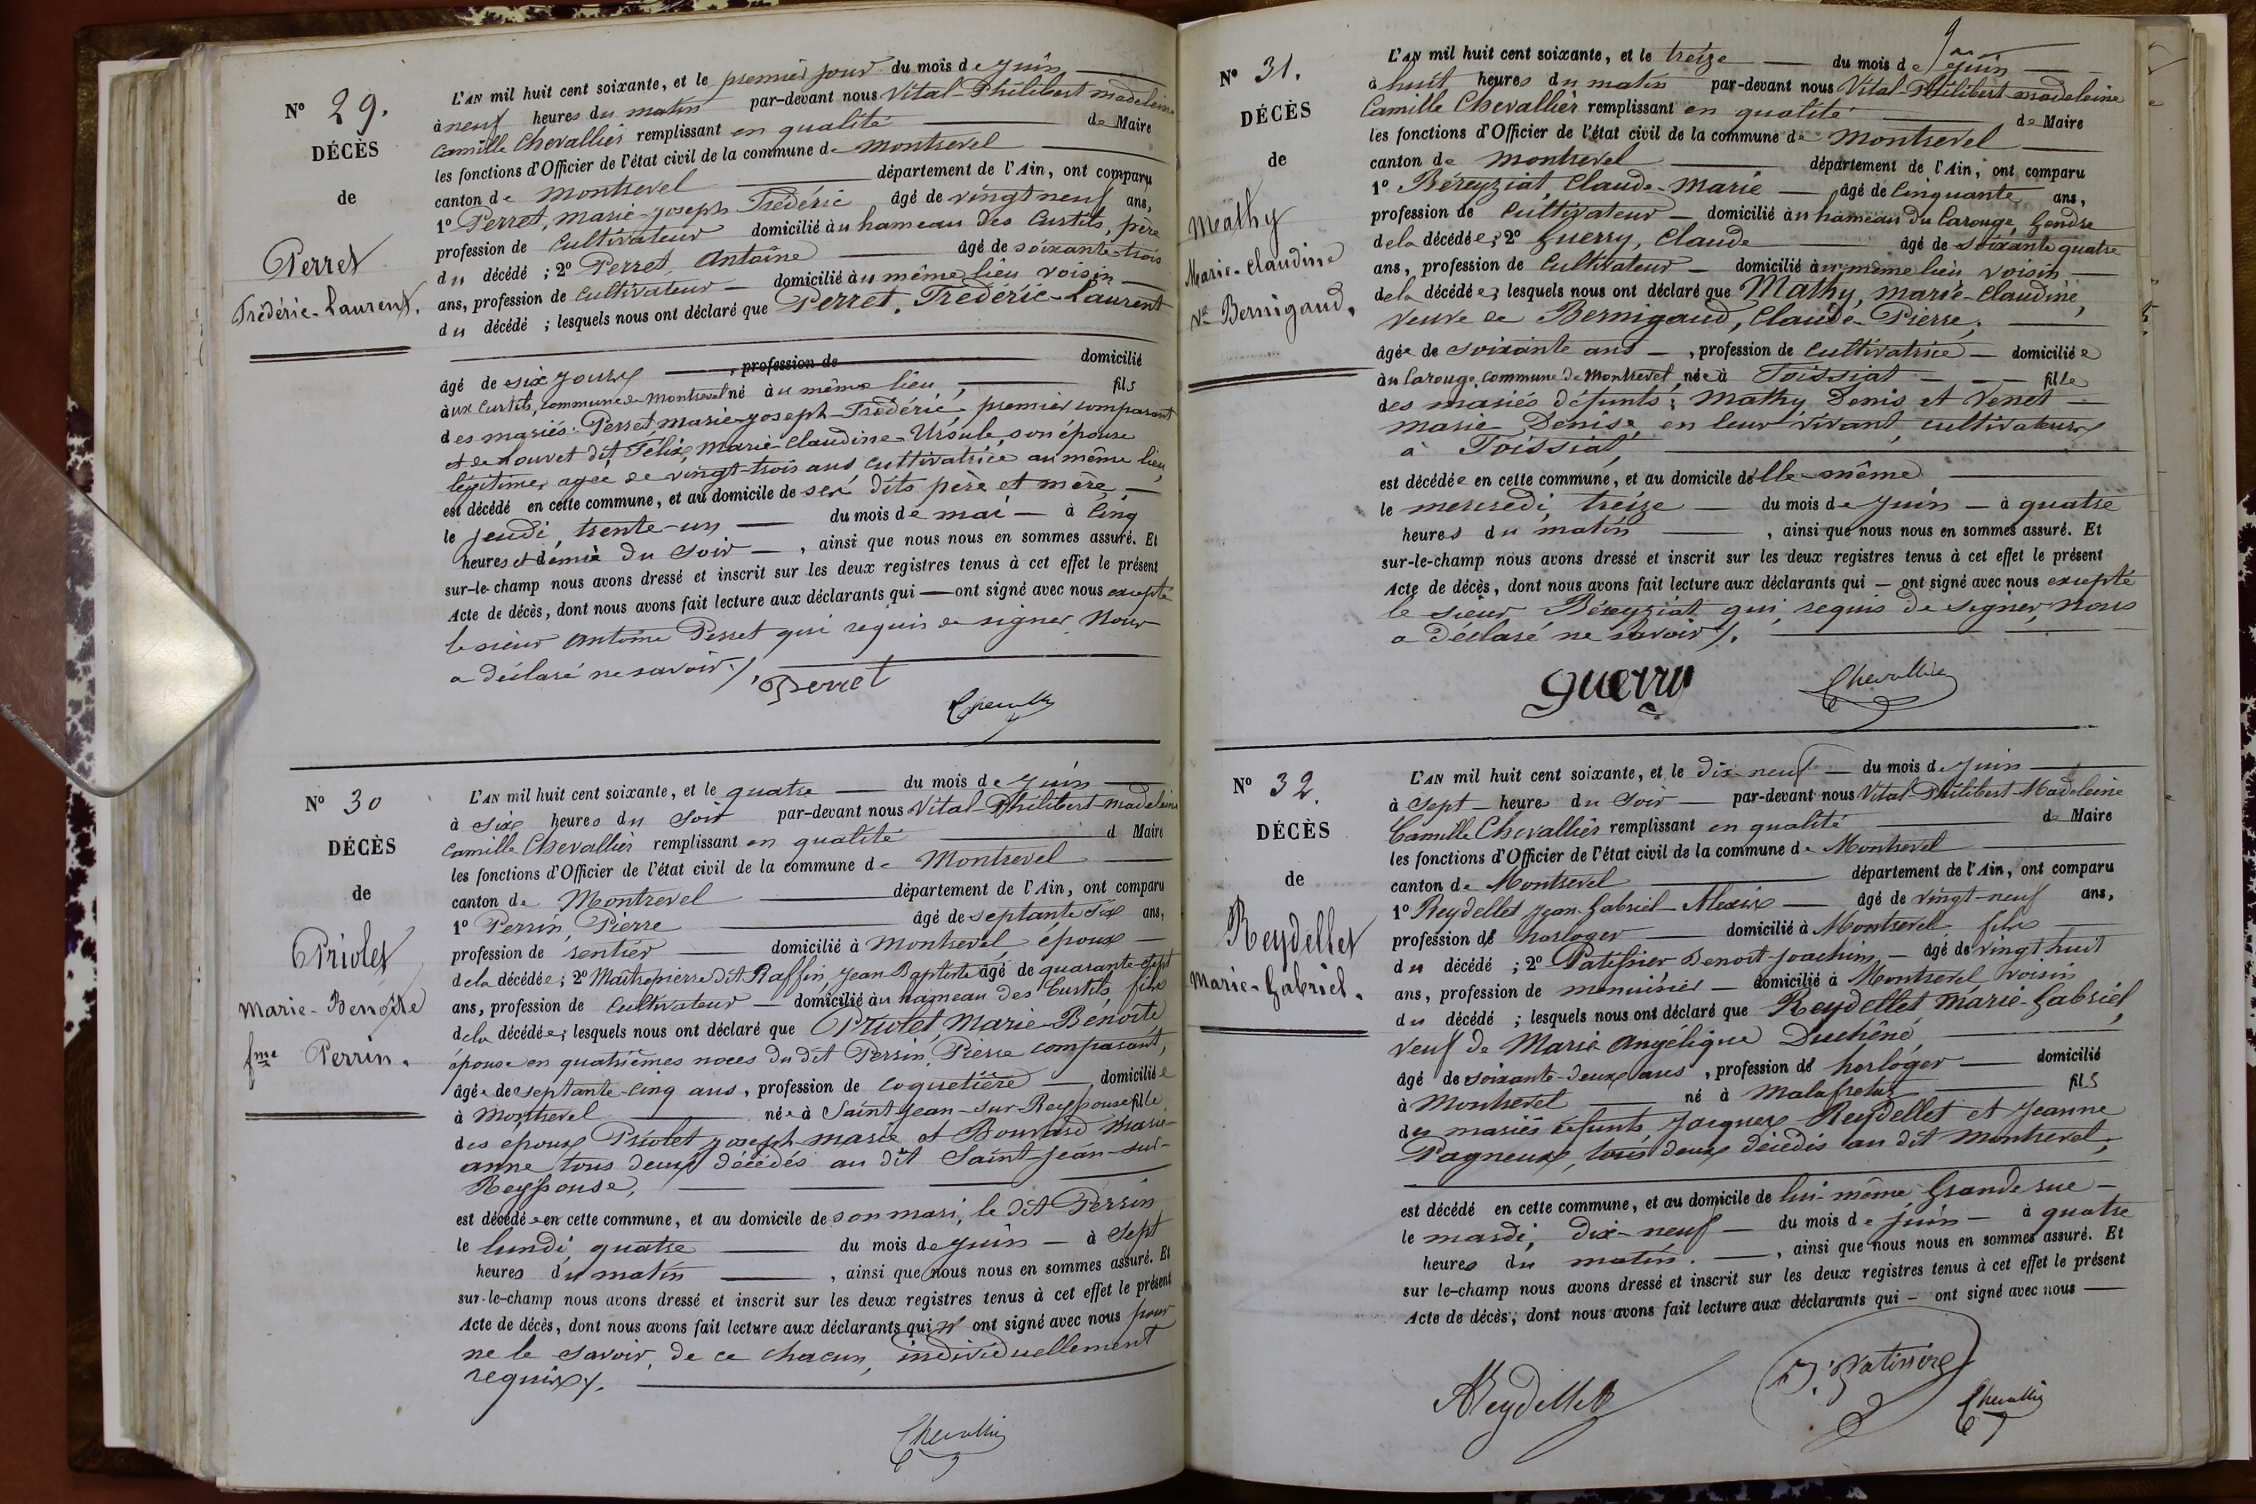 N° 29.
DÉCÈS
de
Perret
Frédéric-Laurent.
L'AN mil huit cent soixante, et le premier jour du mois de Juin
à neuf heures du matin par-devant nous Vital-Philibert madeleine
Camille Chevallier remplissant en qualité de Maire
les fonctions d'Officier de l'état civil de la commune de montrevel
canton de montrevel département de l'Ain, ont comparu
1° Perret, marie-joseph Frédéric âgé de vingt neuf ans,
profession de Cultivateur domicilié à u hameau des Curtits, père
du décédé ; 2° Perret, Antoine âgé de soixante-trois
ans, profession de cultivateur domicilié à u même lieu voisin
du décédé ; lesquels nous ont déclaré que Perret, Frédéric-Laurent
âgé de six jours , profession de domicilié
à ux Curtits, commune de Montrevel né à u même lieu, fils
des mariés : Perret marie-joseph-Frédéric, premier comparant
et de Louvet dit Félix, Marie-Claudine-Ursule, son épouse
légitime, agée de vingt-trois ans, cultivatrice au même lieu,
est décédé en cette commune, et au domicile de ses dits père et mère
le jeudi, trente-un du mois de mai à cinq
heures et demie du soir , ainsi que nous nous en sommes assuré. Et
sur-le-champ nous avons dressé et inscrit sur les deux registres tenus à cet effet le présent
Acte de décès, dont nous avons fait lecture aux déclarants qui — ont signé avec nous excepté
le sieur Antoine Perret qui requis de signer Nous
a déclaré ne savoir./.
Perret
Chevallier
N° 30
DÉCÈS
de
Priolet
Marie-Benoîte
fme Perrin.
L'AN mil huit cent soixante, et le quatre du mois de Juin
à six heures du soir par-devant nous Vital-Philibert-madeleine
Camille Chevallier remplissant en qualité d Maire
les fonctions d'Officier de l'état civil de la commune de Montrevel
canton de Montrevel département de l'Ain, ont comparu
1° Perrin, Pierre âgé de septante six ans,
profession de rentier domicilié à Montrevel époux
de la décédée ; 2° Maitrepierre dit Raffin, Jean-Baptiste âgé de quarante-sept
ans, profession de cultivateur domicilié à u hameau des Curtits fils
de la décédée ; lesquels nous ont déclaré que Priolet, Marie-Benoîte
épouse en quatrièmes noces du dit Perrin, Pierre comparant,
âgée de septante-cinq ans, profession de coquetière , domiciliée
à Montrevel née à Saint-Jean-sur-Reyssouze fille
des epoux Priolet joseph-marie et Bouvard Marie-
anne tous deux décédés au dit Saint-Jean-sur-
Reyssouse,
est décédée en cette commune, et au domicile de son mari, le dit Perrin
le lundi quatre du mois de Juin à sept
heures du matin , ainsi que nous nous en sommes assuré. Et
sur-le-champ nous avons dressé et inscrit sur les deux registres tenus à cet effet le présent
Acte de décès, dont nous avons fait lecture aux déclarants qui n' ont signé avec nous pour
ne le savoir, de ce chacun, individuellement
requis./.
Chevallier
9
N° 31.
DÉCÈS
de
Mathy
Marie-Claudine
Ve Bernigaud.
L'AN mil huit cent soixante, et le treize du mois de Juin
à huit heures du matin par-devant nous Vital-Philibert-madeleine
Camille Chevallier remplissant en qualité de Maire
les fonctions d'Officier de l'état civil de la commune de Montrevel
canton de Montrevel département de l'Ain, ont comparu
1° Béreyziat, Claude-Marie âgé de cinquante ans,
profession de cultivateur domicilié à u hameau du Carouge, Gendre
de la décédée ; 2° Guerry, Claude âgé de soixante quatre
ans, profession de cultivateur domicilié à u même lieu voisin
de la décédée ; lesquels nous ont déclaré que Mathy, Marie-Claudine,
veuve de Bernigaud, Claude-Pierre,
âgée de soixante ans , profession de cultivatrice domiciliée
à u Carouge, commune de Montrevel, née à Foissiat fille
des mariés défunts : Mathy Denis et Venet
marie Denise, en leur vivant, cultivateurs
à Foissiat,
est décédée en cette commune, et au domicile d'elle-même
le mercredi, treize du mois de Juin à quatre
heures du matin , ainsi que nous nous en sommes assuré. Et
sur-le-champ nous avons dressé et inscrit sur les deux registres tenus à cet effet le présent
Acte de décès, dont nous avons fait lecture aux déclarants qui — ont signé avec nous excepté
le sieur Béreyziat qui, requis de signer, nous
a déclaré ne savoir./.
Guerry
Chevallier
N° 32.
DÉCÈS
de
Reydellet
Marie-Gabriel.
L'AN mil huit cent soixante, et le dix-neuf du mois de Juin
à sept heure du soir par-devant nous Vital-Philibert-Madeleine
Camille Chevallier remplissant en qualité de Maire
les fonctions d'Officier de l'état civil de la commune de Montrevel
canton de Montrevel département de l'Ain, ont comparu
1° Reydellet Jean-Gabriel-Alexis âgé de vingt-neuf ans,
profession d' horloger domicilié à Montrevel fils
du décédé ; 2° Patissier Benoit-Joachim âgé de vingt huit
ans, profession de menuisier domicilié à Montrevel voisin
du décédé ; lesquels nous ont déclaré que Reydellet Marie-Gabriel,
veuf de Marie Angélique Duchêne,
âgé de soixante-deux ans , profession d' horloger domicilié
à Montrevel né à Malafretaz fils
des mariés défunts Jacques Reydellet et Jeanne
Pagneux, tous deux décédés au dit Montrevel,
est décédé en cette commune, et au domicile de lui-même Grande rue
le mardi, dix-neuf du mois de juin à quatre
heures du matin. , ainsi que nous nous en sommes assuré. Et
sur le-champ nous avons dressé et inscrit sur les deux registres tenus à cet effet le présent
Acte de décès, dont nous avons fait lecture aux déclarants qui — ont signé avec nous
AReydellet
J. Patissier
Chevallier